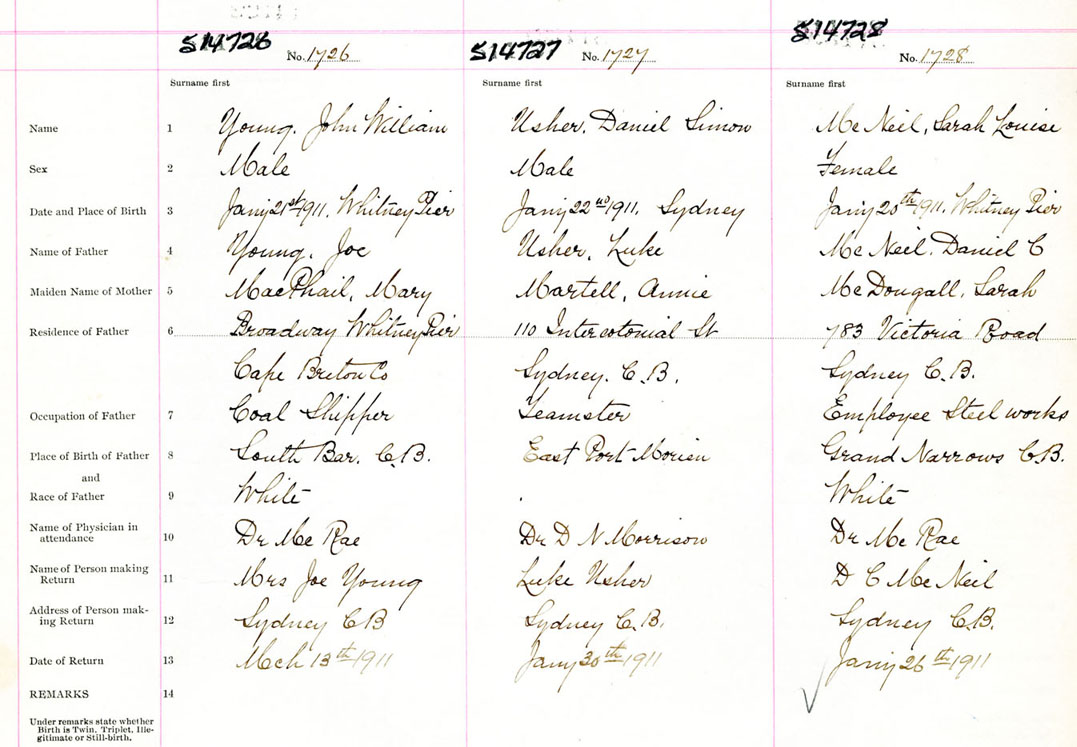 S14726 S14727 S14728
No. 1726 No. 1727 No. 1728
Surname first Surname first Surname first
Name 1 Young, John William Usher, Daniel Simon Mc Neil, Sarah Louise
Sex 2 Male Male Female
Date and Place of Birth 3 Jany 21st 1911. Whitney Pier Jany 22nd 1911. Sydney Jany 20th 1911. Whitney Pier
Name of Father 4 Young, Joe Usher, Luke Mc Neil. Daniel C
Maiden Name of Mother 5 MacPhail, Mary Martell, Annie Mc Dougall, Sarah
Residence of Father 6 Broadway Whitney Pier 110 Intercolonial St 783 Victoria Road
Cape Breton Co Sydney. C.B. Sydney C.B.
Occupation of Father 7 Coal Shipper Teamster Employee Steel works
Place of Birth of Father 8 South Bar. C.B. East Port Morien Grand Narrows C.B.
and
Race of Father 9 White White
Name of Physician in
attendance 10 Dr Mc Rae Dr D N Morrison Dr Mc Rae
Name of Person making
Return 11 Mrs Joe Young Luke Usher D C Mc Neil
Address of Person mak-
ing Return 12 Sydney C B Sydney C.B. Sydney C.B.
Date of Return 13 Mch 13th 1911 Jany 30th 1911 Jany 26th 1911
REMARKS 14
Under remarks state whether
Birth is Twin. Triplet. Ille-
gitimate or Still-birth.